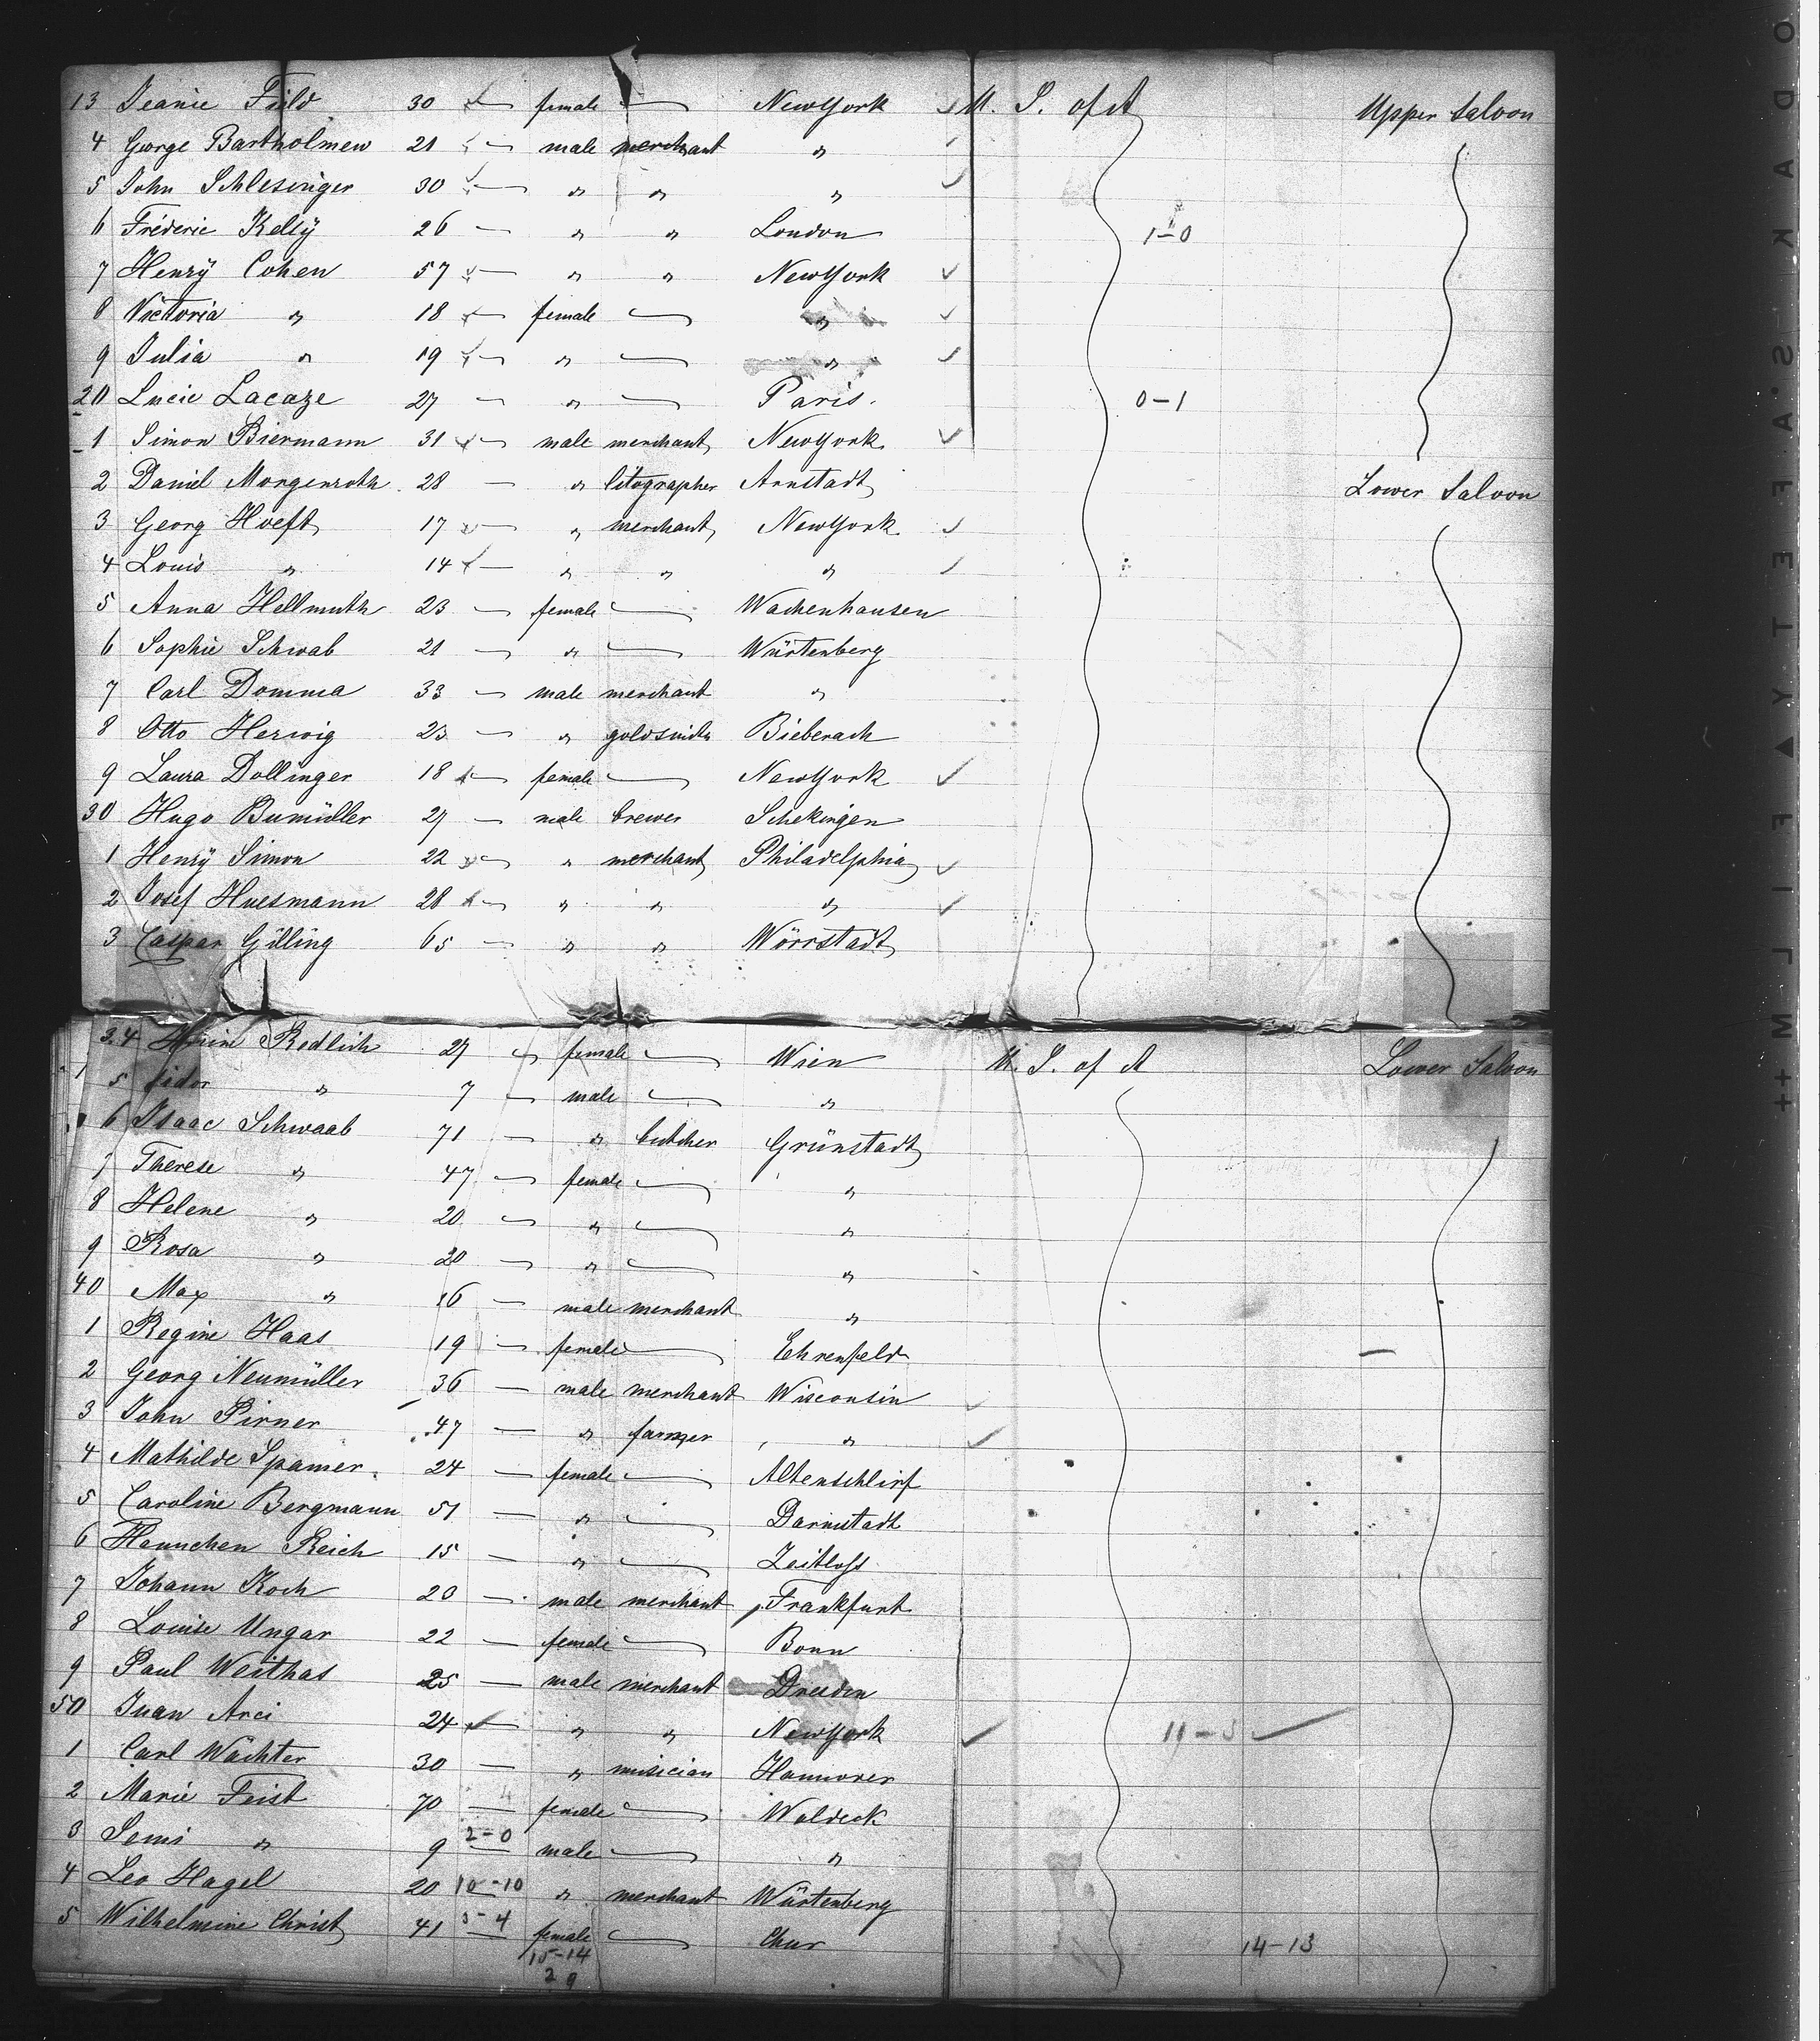 13 Jeanie Field 30 — female — NewYork U. S. of A Upper Saloon
4 George Bartholmew 21 — male merchant "
5 John Schlesinger 30 — " " "
6 Fréderic Kelly 26 — " " London 1-0
7 Henry Cohen 57 — " " NewYork
8 Victoria " 18 — female — "
9 Julia " 19 — " — "
20 Lucie Lacaze 27 — " — Paris. 0-1
1 Simon Biermann 31 — male merchant NewYork
2 Daniel Morgenroth 28 — " litographer Arnstadt Lower Saloon
3 Georg Hoeft 17 — " merchant NewYork
4 Louis " 14 — " " "
5 Anna Hellmuth 23 — female — Wachenhausen
6 Sophie Schwab 21 — " — Würtenberg
7 Carl Domma 33 — male merchant "
8 Otto Herwig 23 — " goldsmith Bieberach
9 Laura Dollinger 18 — female — NewYork
30 Hugo Bumüller 27 — male brewer Schekingen
1 Henry Simon 22 — " merchant Philadelphia
2 Josef Huesmann 28 — " " "
3 Caspar Gilling 65 — " " Wörrstadt
34 Redlich 27 — female — Wien U. S. of A Lower Saloon
5 " 7 — male — "
6 Isaac Schwaab 71 — " butcher Grünstadt
7 Therese " 47 — female — "
8 Helene " 20 — " — "
9 Rosa " 20 — " — "
40 Max " 16 — male merchant "
1 Regine Haas 19 — female — Ehrenfeld
2 Georg Neumüller 36 — male merchant Wisconsin
3 John Pirner 47 — " farmer "
4 Mathilde Spamer 24 — female — Altenschlirf
5 Caroline Bergmann 51 — " — Darmstadt
6 Hannchen Reich 15 — " — Zeitlofs
7 Johann Koch 20 — male merchant Frankfurt
8 Louise Ungar 22 — female — Bonn
9 Paul Weithas 25 — male merchant Dresden
50 Juan Arci 24 — " " NewYork 11-3
1 Carl Wächter 30 — " musician Hannover
2 Marie Feist 70 — female — Waldeck
3 Semi " 9 2-0 male — "
4 Leo Hagel 20 10-10 " merchant Würtenberg
5 Wilhelmine Christ 41 3-4 female — Chur 14-13
15-14
29